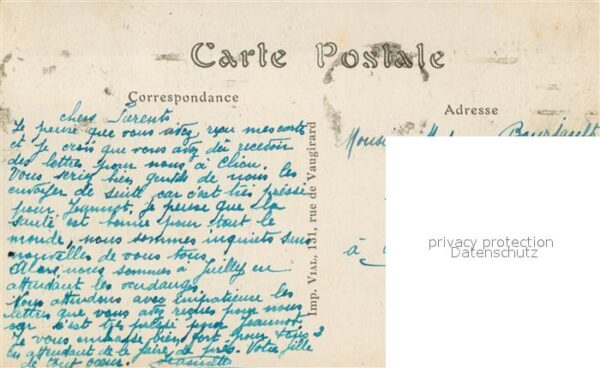 Carte Postale
Correspondance
Adresse
chers Parents
Je pense que vous avez reçu mes cartes
et je crois que vous avez dû recevoir
des lettres pour nous à Clion.
Vous seriez bien gentils de nous les
envoyer de suite car c'est très pressé
pour Jeannot, je pense que la
santé est bonne pour tout le
monde, nous sommes inquiets sans
nouvelles de vous tous.
Alors nous sommes à Juilley en
attendant les vendanges.
Nous attendons avec impatience les
lettres que vous avez reçues pour nous
car c'est très pressé pour Jeannot.
Je vous embrasse bien fort pour tous 2
en attendant de le faire de près. Votre fille
de tout cœur.
Imp. VIAL, 131, rue de Vaugirard
Monsieur Bourjault
à
privacy protection
Datenschutz